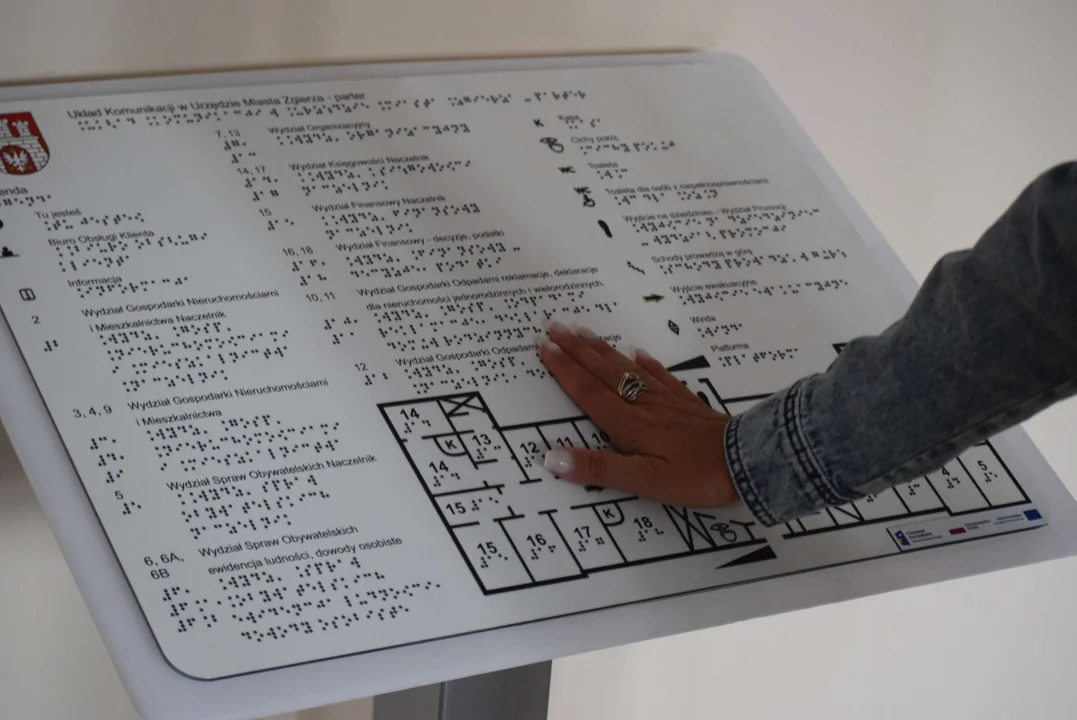 Układ Komunikacji w Urzędzie Miasta Zgierza - parter
enda
Tu jesteś
Biuro Obsługi Klienta
Informacja
2
Wydział Gospodarki Nieruchomościami
i Mieszkalnictwa Naczelnik
3, 4, 9
Wydział Gospodarki Nieruchomościami
i Mieszkalnictwa
5
Wydział Spraw Obywatelskich Naczelnik
6, 6A,
6B
Wydział Spraw Obywatelskich
ewidencja ludności, dowody osobiste
7, 13
Wydział Organizacyjny
14, 17
Wydział Księgowości Naczelnik
15
Wydział Finansowy Naczelnik
16, 18
Wydział Finansowy - decyzje, podatki
10, 11
Wydział Gospodarki Odpadami reklamacje, deklaracje
dla nieruchomości jednorodzinnych i wielorodzinnych
12
Wydział Gospodarki Odpadami
K
Kasa
Cichy pokój
WC
Toaleta
WC
Toaleta dla osób z niepełnosprawnościami
Wyjście na dziedziniec - Wydział Promocji
Schody prowadzą w górę
Wyjście ewakuacyjne
Winda
Platforma
14
K
13
14
12
11
10
15
15
16
17
K
18
4
5